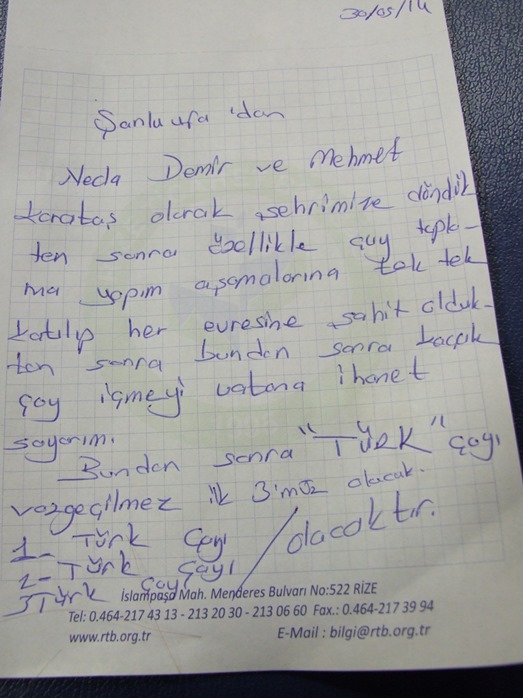 30/05/14
Şanlıurfa'dan
Necla Demir ve Mehmet
Karataş olarak şehrimize döndük
ten sonra özellikle çay topla-
ma yapım aşamalarına tek tek
katılıp her evresine şahit olduk-
tan sonra bundan sonra kaçak
çay içmeyi vatana ihanet
sayarım.
Bundan sonra "TÜRK" çayı
vazgeçilmez ilk 3'müz olacak.
1- Türk Çayı / olacaktır.
2- Türk çayı
3 Türk çayı
İslampaşa Mah. Menderes Bulvarı No:522 RİZE
Tel: 0.464-217 43 13 - 213 20 30 - 213 06 60 Fax.: 0.464-217 39 94
www.rtb.org.tr E-Mail : bilgi@rtb.org.tr